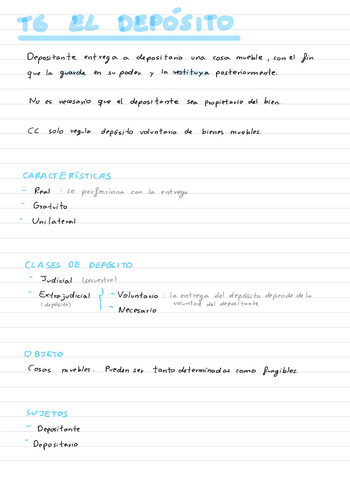 T6 EL DEPÓSITO
Depositante entrega a depositario una cosa mueble, con el fin
que la guarde en su poder y la restituya posteriormente.
No es necesario que el depositante sea propietario del bien.
CC solo regula depósito voluntario de bienes muebles.
CARACTERÍSTICAS
- Real : se perfecciona con la entrega
- Gratuito
- Unilateral
CLASES DE DEPÓSITO
- Judicial (secuestro)
- Extrajudicial - Voluntario : la entrega del depósito depende de la
(depósito) voluntad del depositante
- Necesario
OBJETO
Cosas muebles. Pueden ser tanto determinadas como fungibles.
SUJETOS
- Depositante
- Depositario